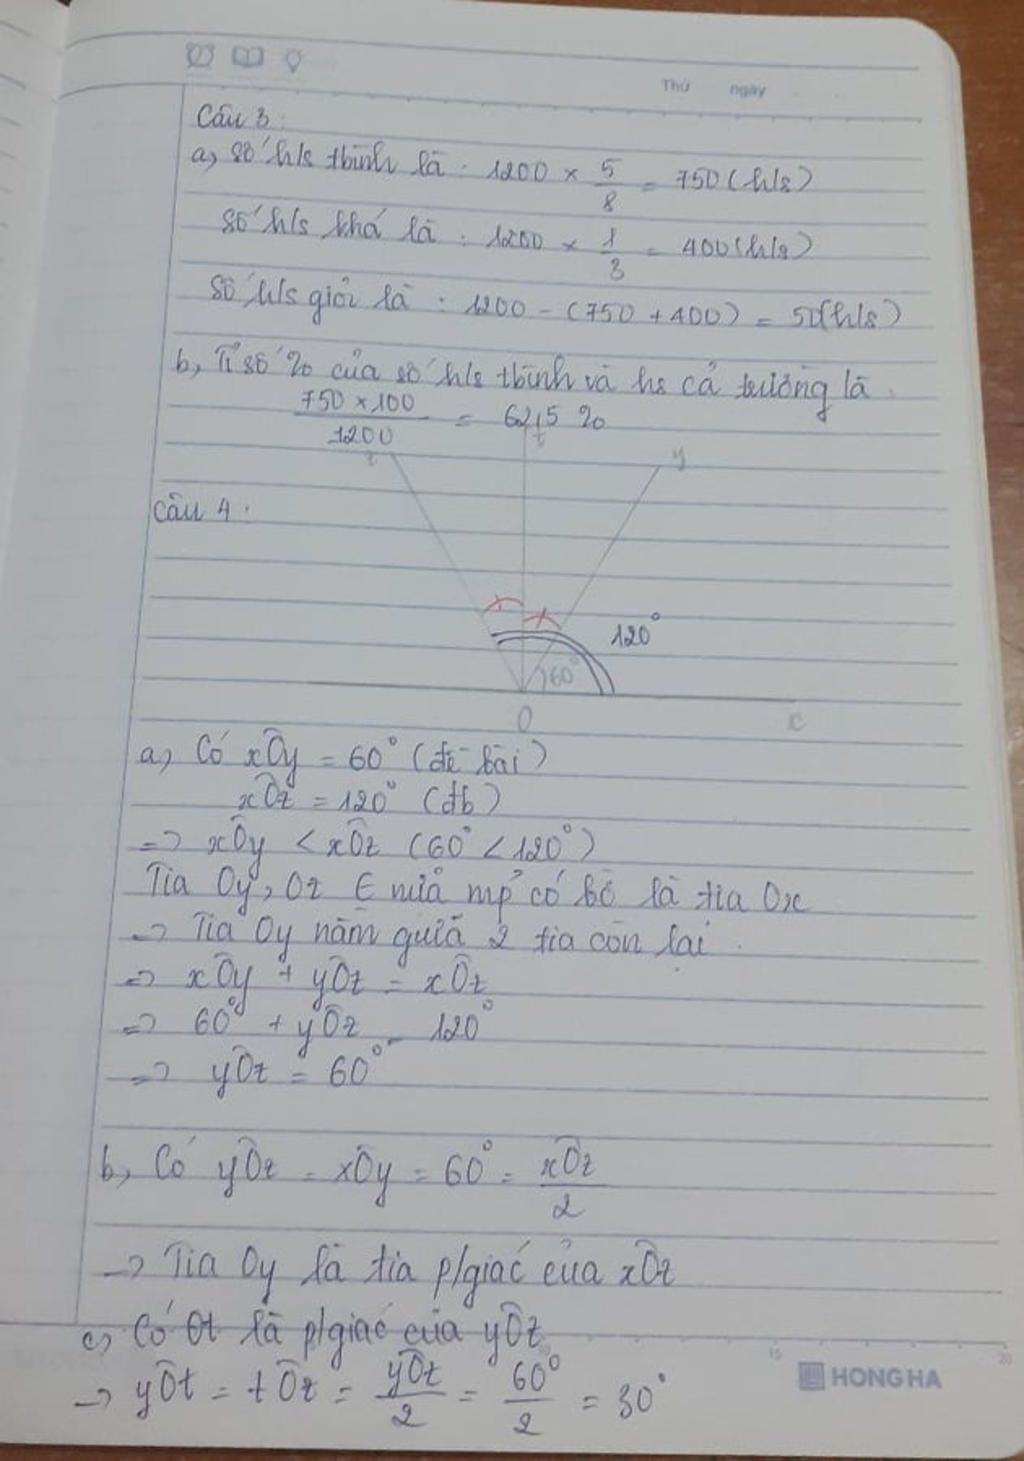 Thứ ngày
Câu 3:
a, Số h/s tbình là : 1200 × 5/8 = 750 (h/s)
Số h/s khá là : 1200 × 1/3 = 400 (h/s)
Số h/s giỏi là : 1200 - (750 + 400) = 50 (h/s)
b, Tỉ số % của số h/s tbình và hs cả trường là :
750 × 100 / 1200 = 62,5 %
z t y
Câu 4 :
120°
60°
O x
a, Có xÔy = 60° (đề bài)
xÔz = 120° (đb)
=> xÔy < xÔz (60° < 120°)
Tia Oy, Oz ∈ nửa mp có bờ là tia Ox
=> Tia Oy nằm giữa 2 tia còn lại .
=> xÔy + yÔz = xÔz
=> 60° + yÔz = 120°
=> yÔz = 60°
b, Có yÔz = xÔy = 60° = xÔz/2
=> Tia Oy là tia p/giác của xÔz
c, Có Ot là p/giác của yÔz
=> yÔt = tÔz = yÔz/2 = 60°/2 = 30°
15 20
HONG HA